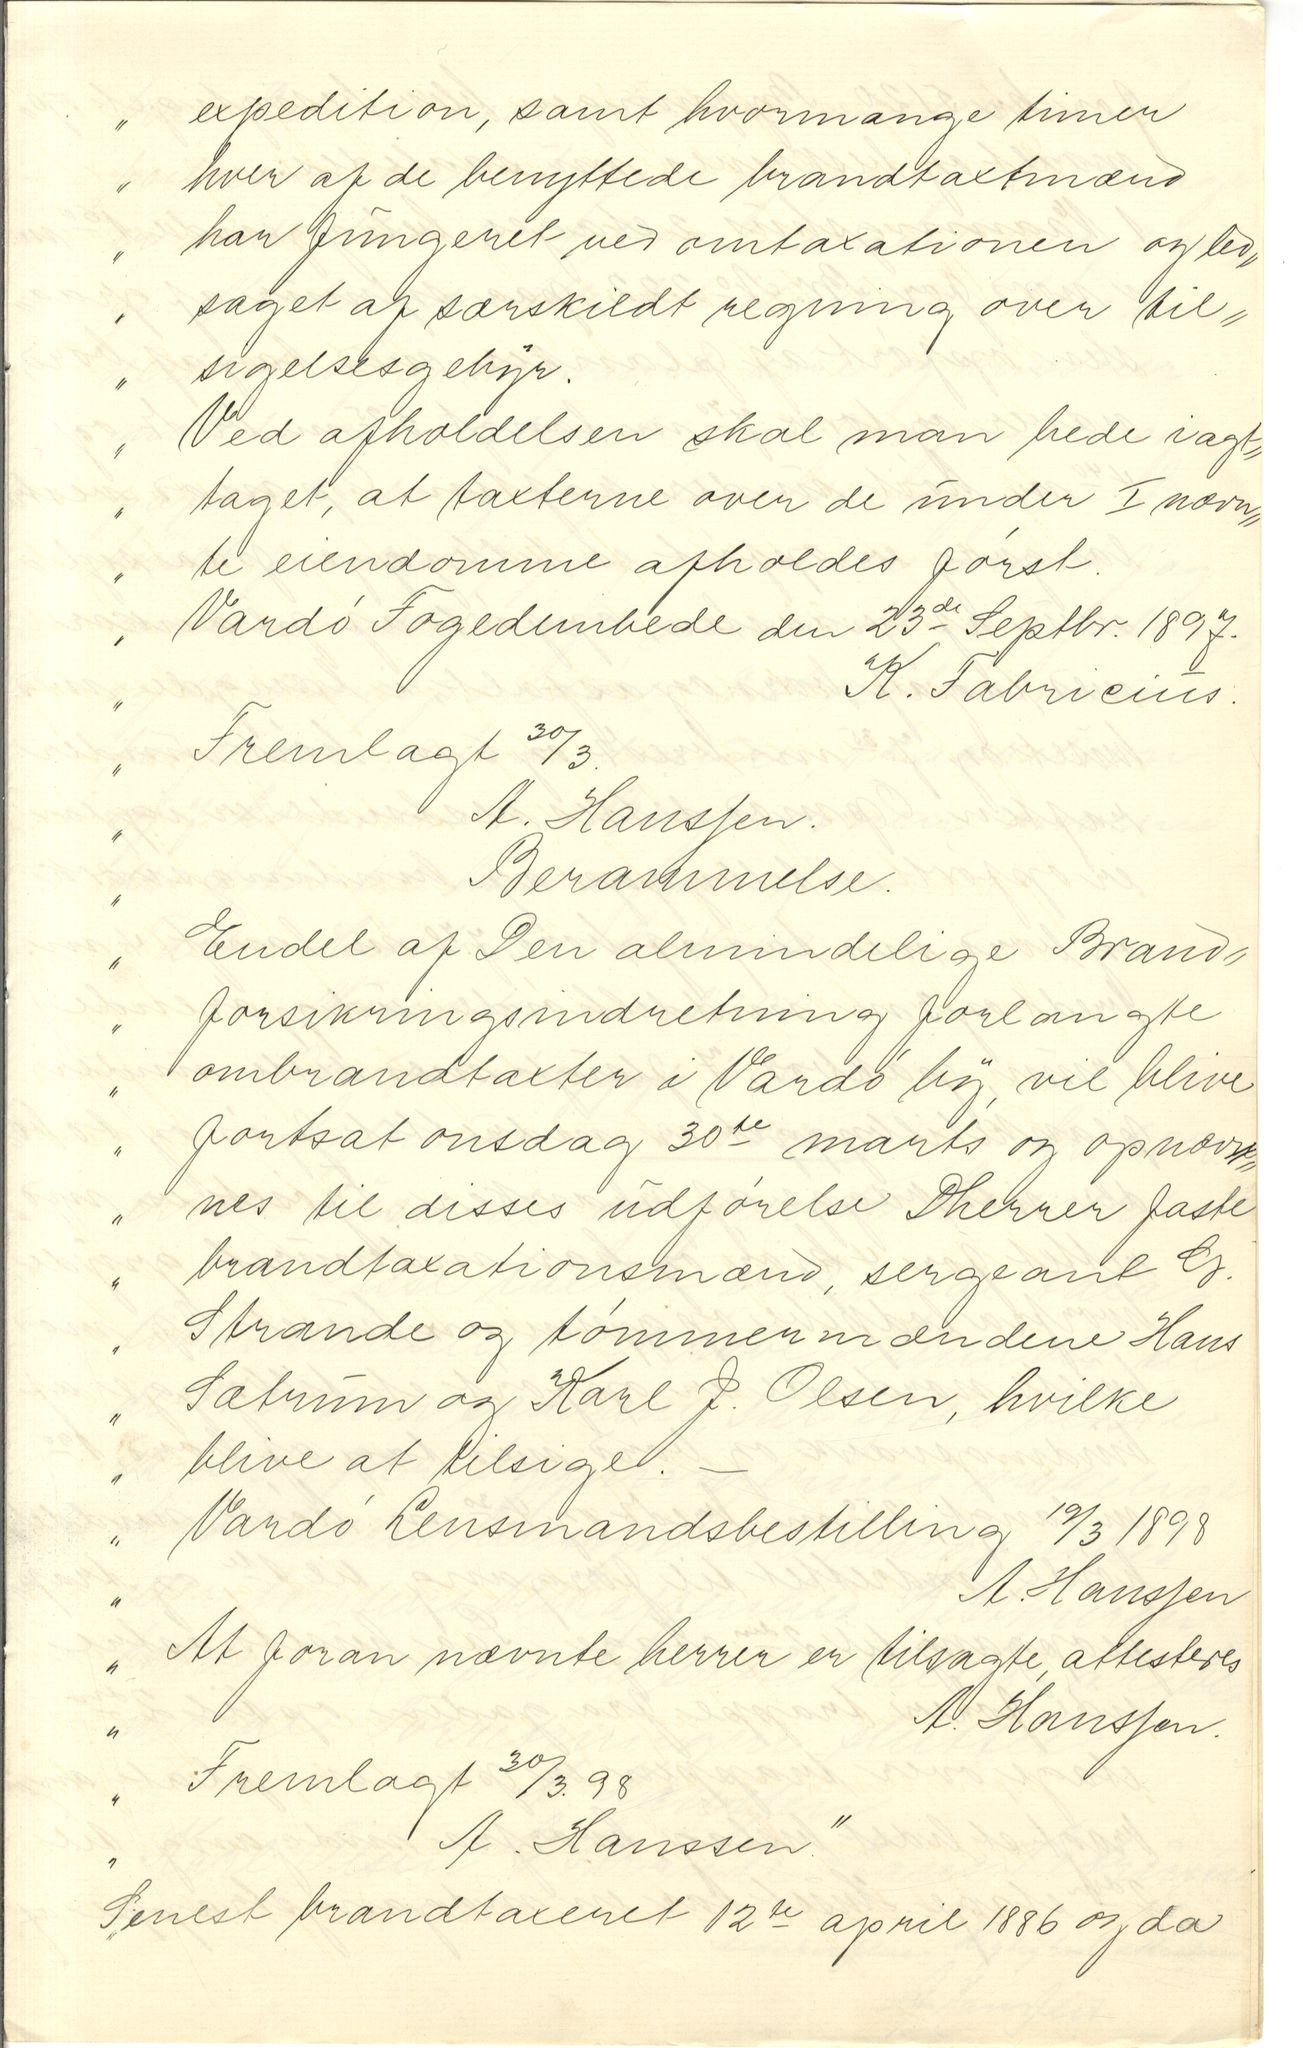 " expedition, samt hvormange timer
" hver af de benyttede brandtaxtmænd
" har fungeret ved omtaxationen og led„
" saget af særskildt regning over til„
" sigelsesgebyr.
" Ved afholdelsen skal man bede iagt„
" taget, at taxterne over de under I nævn„
" te eiendomme afholdes först.
" Vardö Fogedembede den 23de Septbr. 1897.
" K. Fabricius.
" Fremlagt 30/3.
" A. Hanssen.
" Berammelse.
" Endel af Den almindelige Brand„
" forsikringsindretning forlangte
" ombrandtaxter i Vardö by, vil blive
" fortsat onsdag 30te marts og opnævn„
" nes til disses udförelse Dherrer faste
" brandtaxationsmænd, sergeant G.
" Strande og tömmermændene Hans
" Sætrum og Karl J. Olsen, hvilke
" blive at tilsige. —
" Vardö Lensmandsbestilling 19/3 1898
" A. Hanssen
" At foran nævnte herrer er tilsagte, attesteres
" A. Hanssen.
" Fremlagt 30/3. 98
" A. Hanssen."
Senest brandtaxeret 12te april 1886 og da